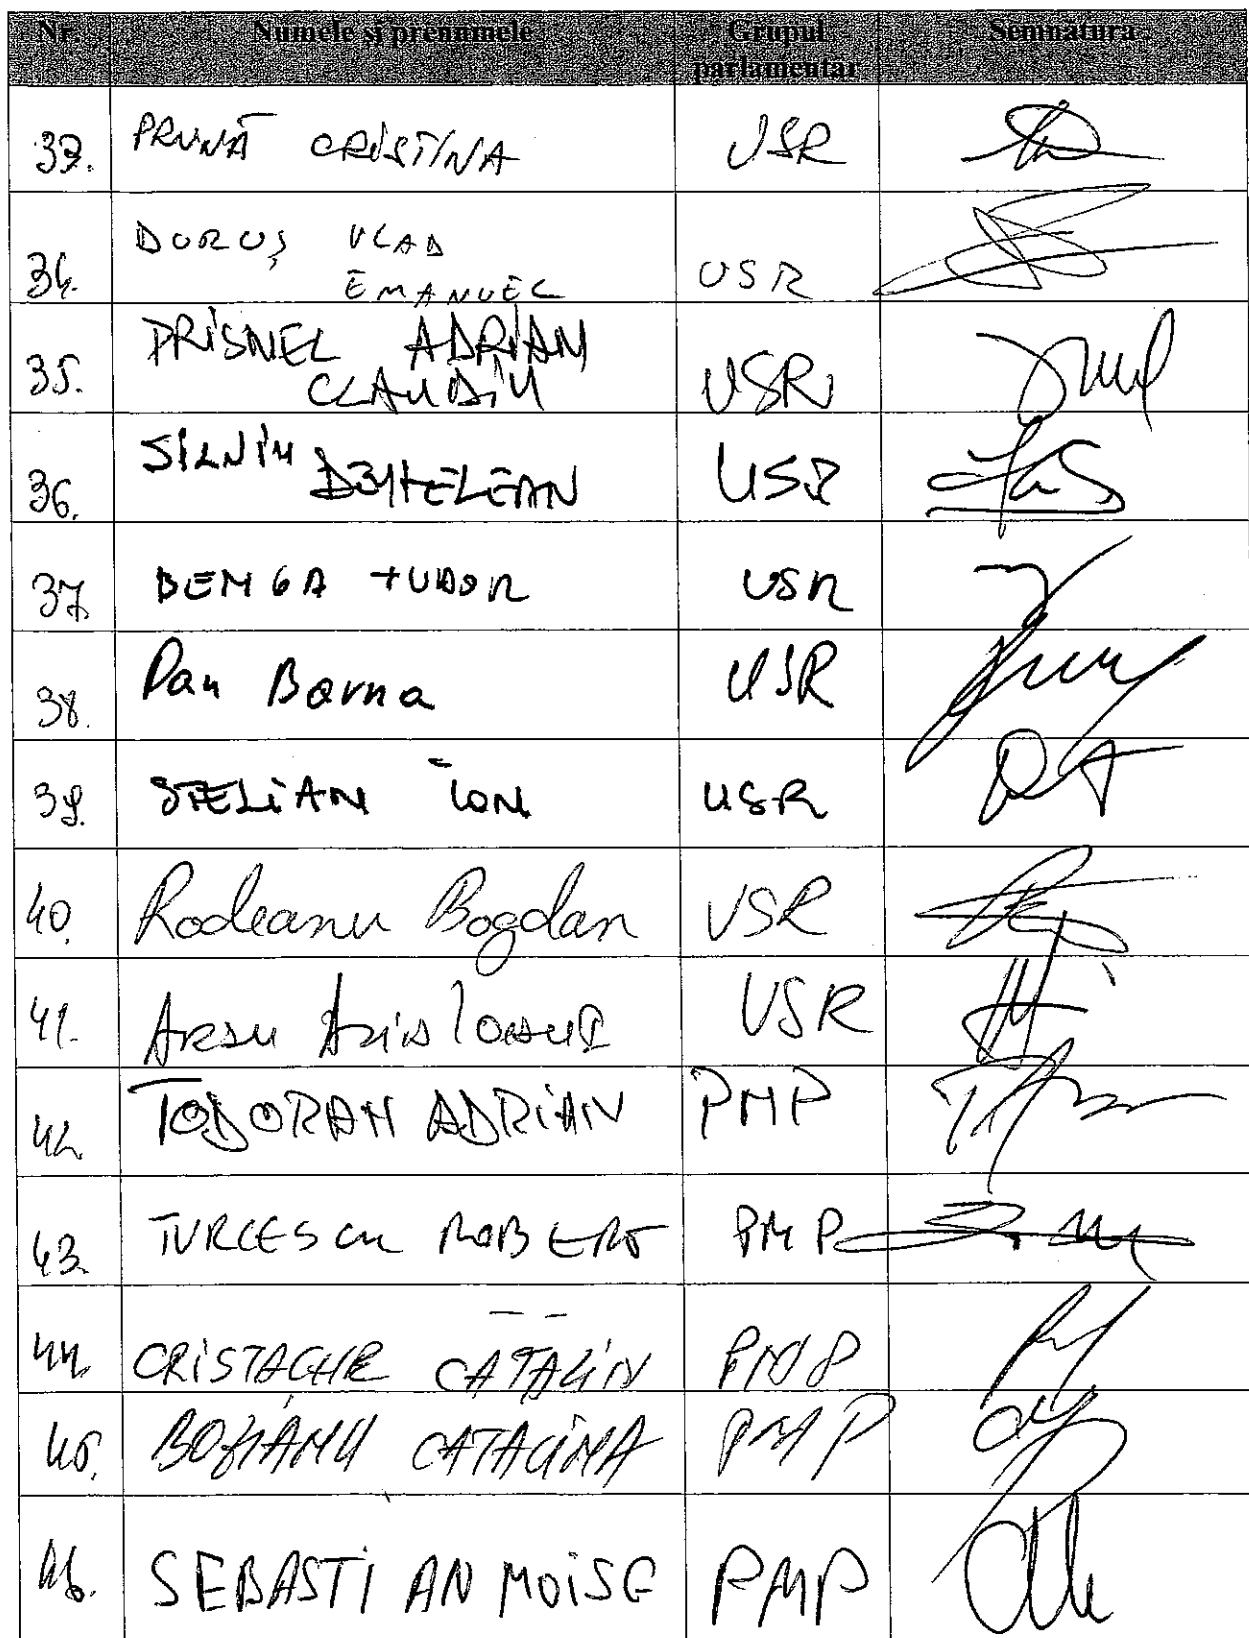 Nr. Numele și prenumele Grupul parlamentar Semnătura
33. PRUNĂ CRISTINA USR
34. DURUȘ VLAD EMANUEL USR
35. PRISNEL ADRIAN CLAUDIU USR
36. SILVIU DEHELEAN USR
37. BENGA TUDOR USR
38. Dan Barna USR
39. STELIAN ION USR
40. Rodeanu Bogdan USR
41. USR
42. TODORAN ADRIAN PMP
43. TURCESCU ROBERT PMP
44. CRISTACHE CĂTĂLIN PMP
45. BOZIANU CATALINA PMP
46. SEBASTIAN MOISE PMP